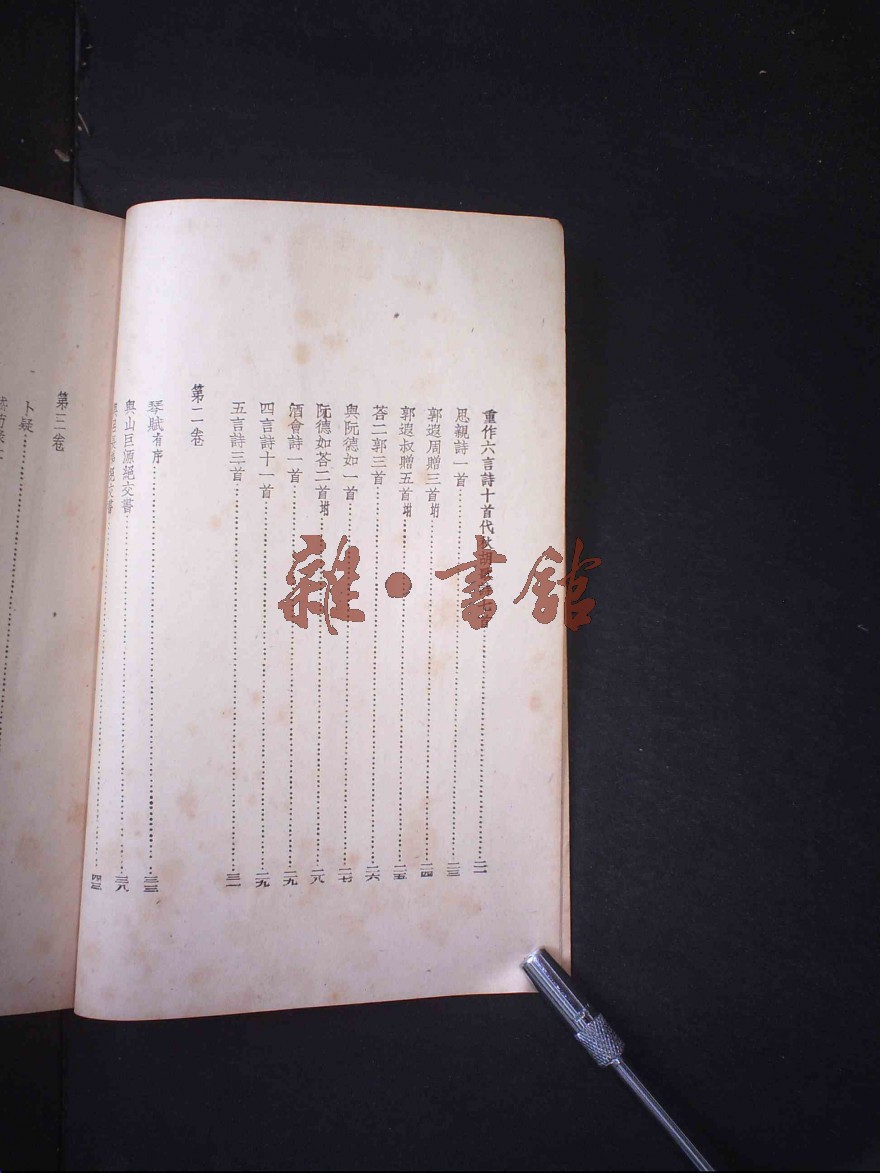 重作六言詩十首代
思親詩一首……二三
郭遐周贈三首坿……二四
郭遐叔贈五首坿……二五
荅二郭三首……二六
與阮德如一首……二七
阮德如荅二首坿……二八
酒會詩一首……二九
四言詩十一首……二九
五言詩三首……三一
第二卷
琴賦有序……三三
與山巨源絕交書……三八
絕交書……四三
第三卷
卜疑……
雜·書館